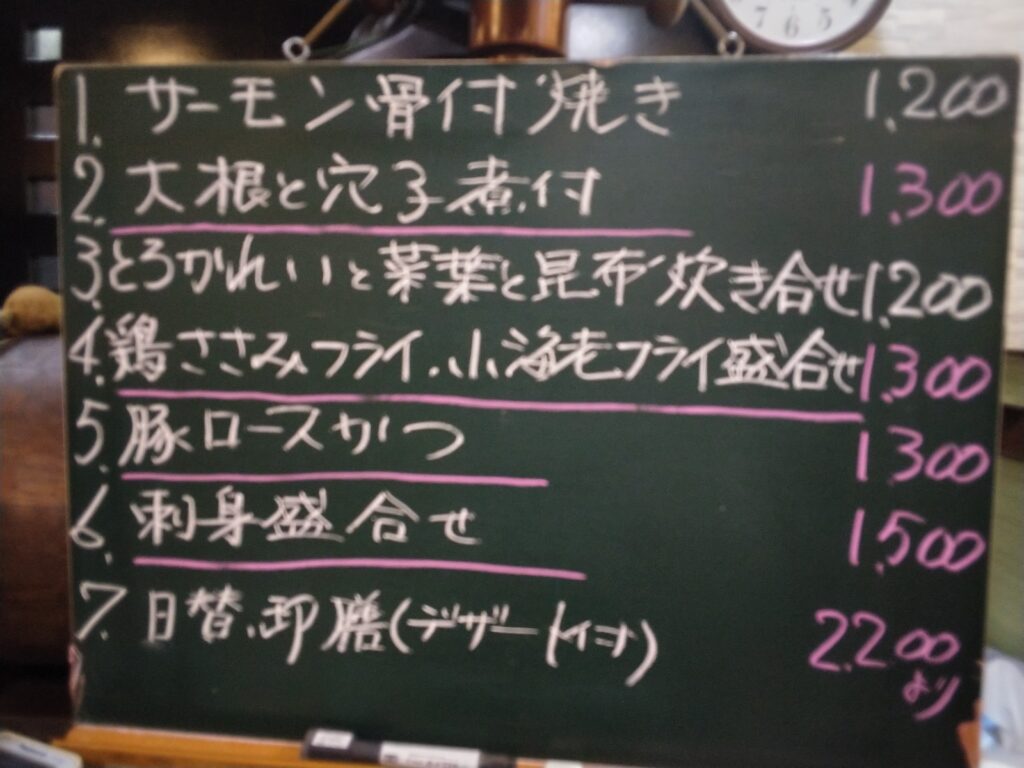 1. サーモン骨付焼き 1,200
2. 大根と穴子煮付 1,300
3. とろかれいと菜葉と昆布炊き合せ 1,200
4. 鶏ささみフライ、小海老フライ盛合せ 1,300
5. 豚ロースかつ 1,300
6. 刺身盛合せ 1,500
7. 日替、御膳(デザート付) 2,200
より
7 6 5